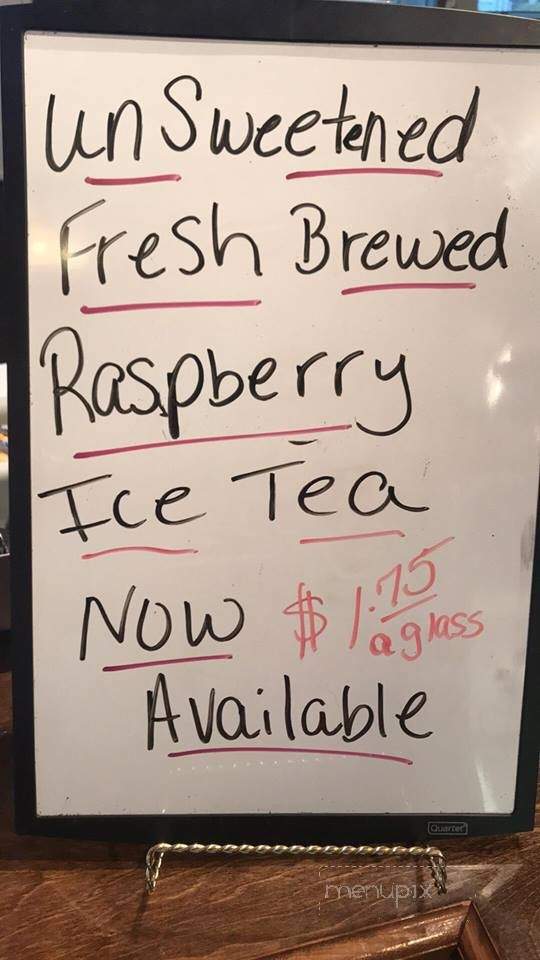 UnSweetened
Fresh Brewed
Raspberry
Ice Tea
Now $1.75
a glass
Available
Quartet
menupix